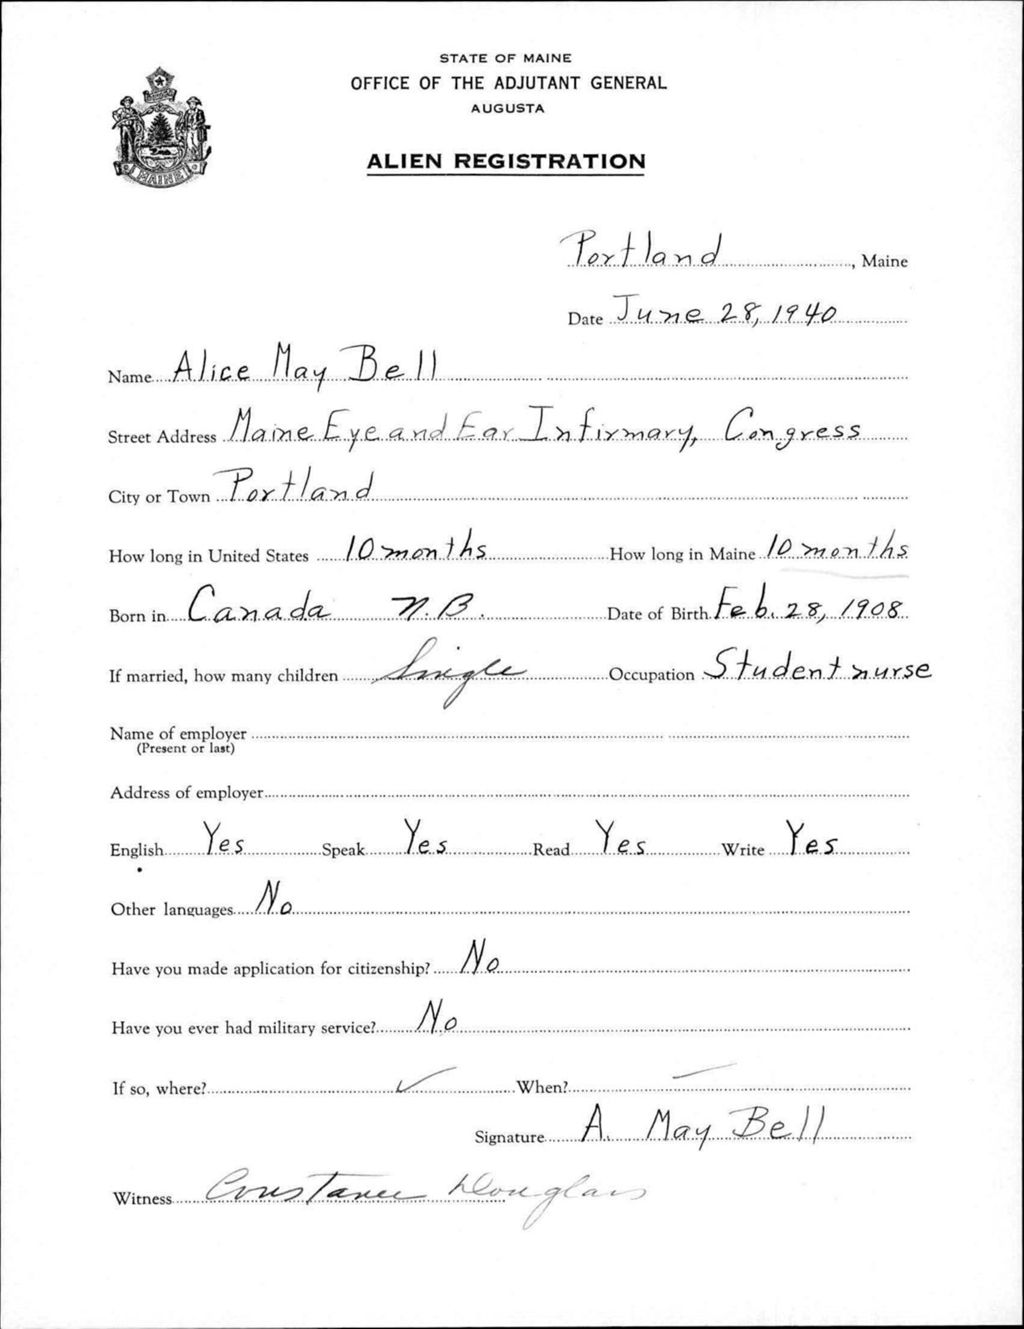 STATE OF MAINE
OFFICE OF THE ADJUTANT GENERAL
AUGUSTA
ALIEN REGISTRATION
MAINE
Portland, Maine
Date June 28, 1940
Name Alice May Bell
Street Address Maine Eye and Ear Infirmary, Congress
City or Town Portland
How long in United States 10 months How long in Maine 10 months
Born in Canada N.B. Date of Birth Feb. 28, 1908
If married, how many children Single Occupation Student nurse
Name of employer
(Present or last)
Address of employer
English Yes Speak Yes Read Yes Write Yes
Other languages No
Have you made application for citizenship? No
Have you ever had military service? No
If so, where? ✓ When? —
Signature A. May Bell
Witness Constance Douglass